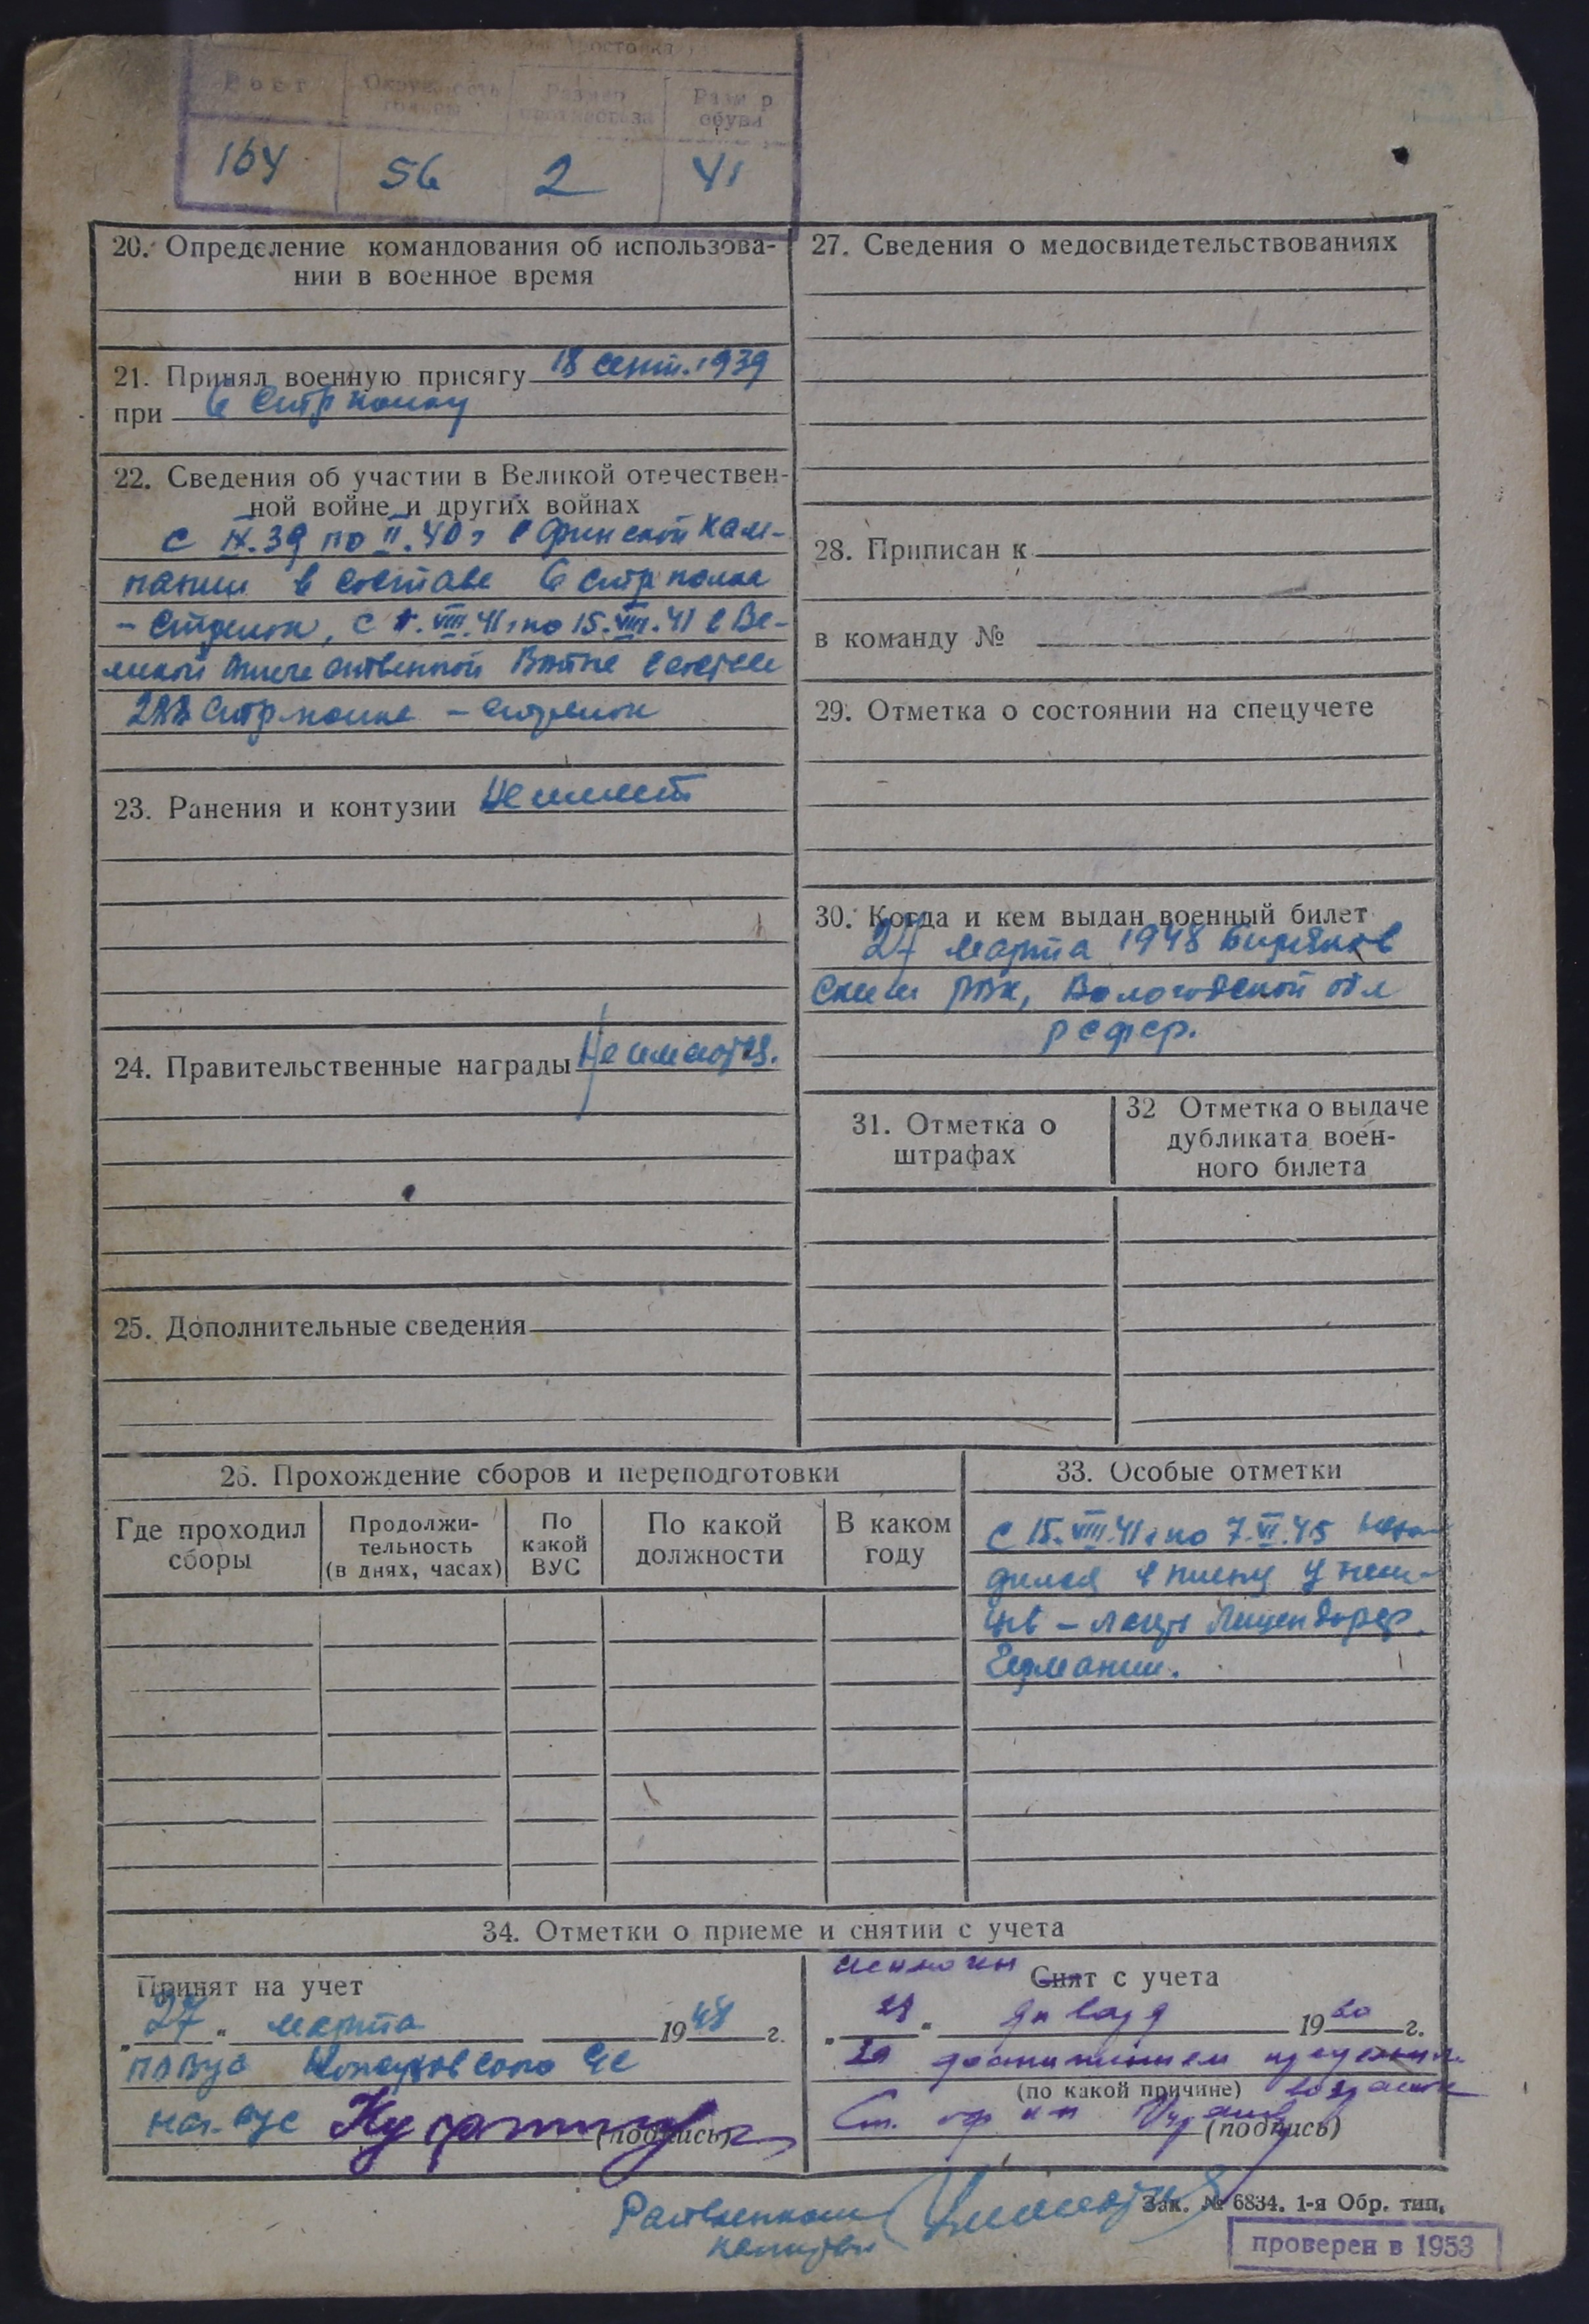 Рост Окружность головы Размер противогаза Размер обуви
164 56 2 41
20. Определение командования об использова-
нии в военное время
21. Принял военную присягу 18 сент. 1939
при 6 стр полку
22. Сведения об участии в Великой отечествен-
ной войне и других войнах
С IX.39 по II.40 г в финской кам-
пании в составе 6 стр полка
- стрелок, с 1.VIII.41 г по 15.VIII.41 в Ве-
ликой отечественной войне в составе
стр. полка - стрелок
23. Ранения и контузии Не имеет
24. Правительственные награды Не имеются.
25. Дополнительные сведения
27. Сведения о медосвидетельствованиях
28. Приписан к
в команду №
29. Отметка о состоянии на спецучете
30. Когда и кем выдан военный билет
27 марта 1948 Биряков
ским РВК, Вологодской обл
РСФСР.
31. Отметка о
штрафах
32 Отметка о выдаче
дубликата воен-
ного билета
26. Прохождение сборов и переподготовки
Где проходил
сборы
Продолжи-
тельность
(в днях, часах)
По
какой
ВУС
По какой
должности
В каком
году
33. Особые отметки
С 15.VIII.41 г по 7.VI.45 нахо-
дился в плену у нем-
цев - лагерь
Германии.
34. Отметки о приеме и снятии с учета
Принят на учет
„27" марта 1948 г.
Нач. вус
(подпись)
исключен Снят с учета
„ " января 1960 г.
за достижением предельн.
(по какой причине) возраста
Ст. оф
(подпись)
Зак. № 6834. 1-я Обр. тип.
проверен в 1953